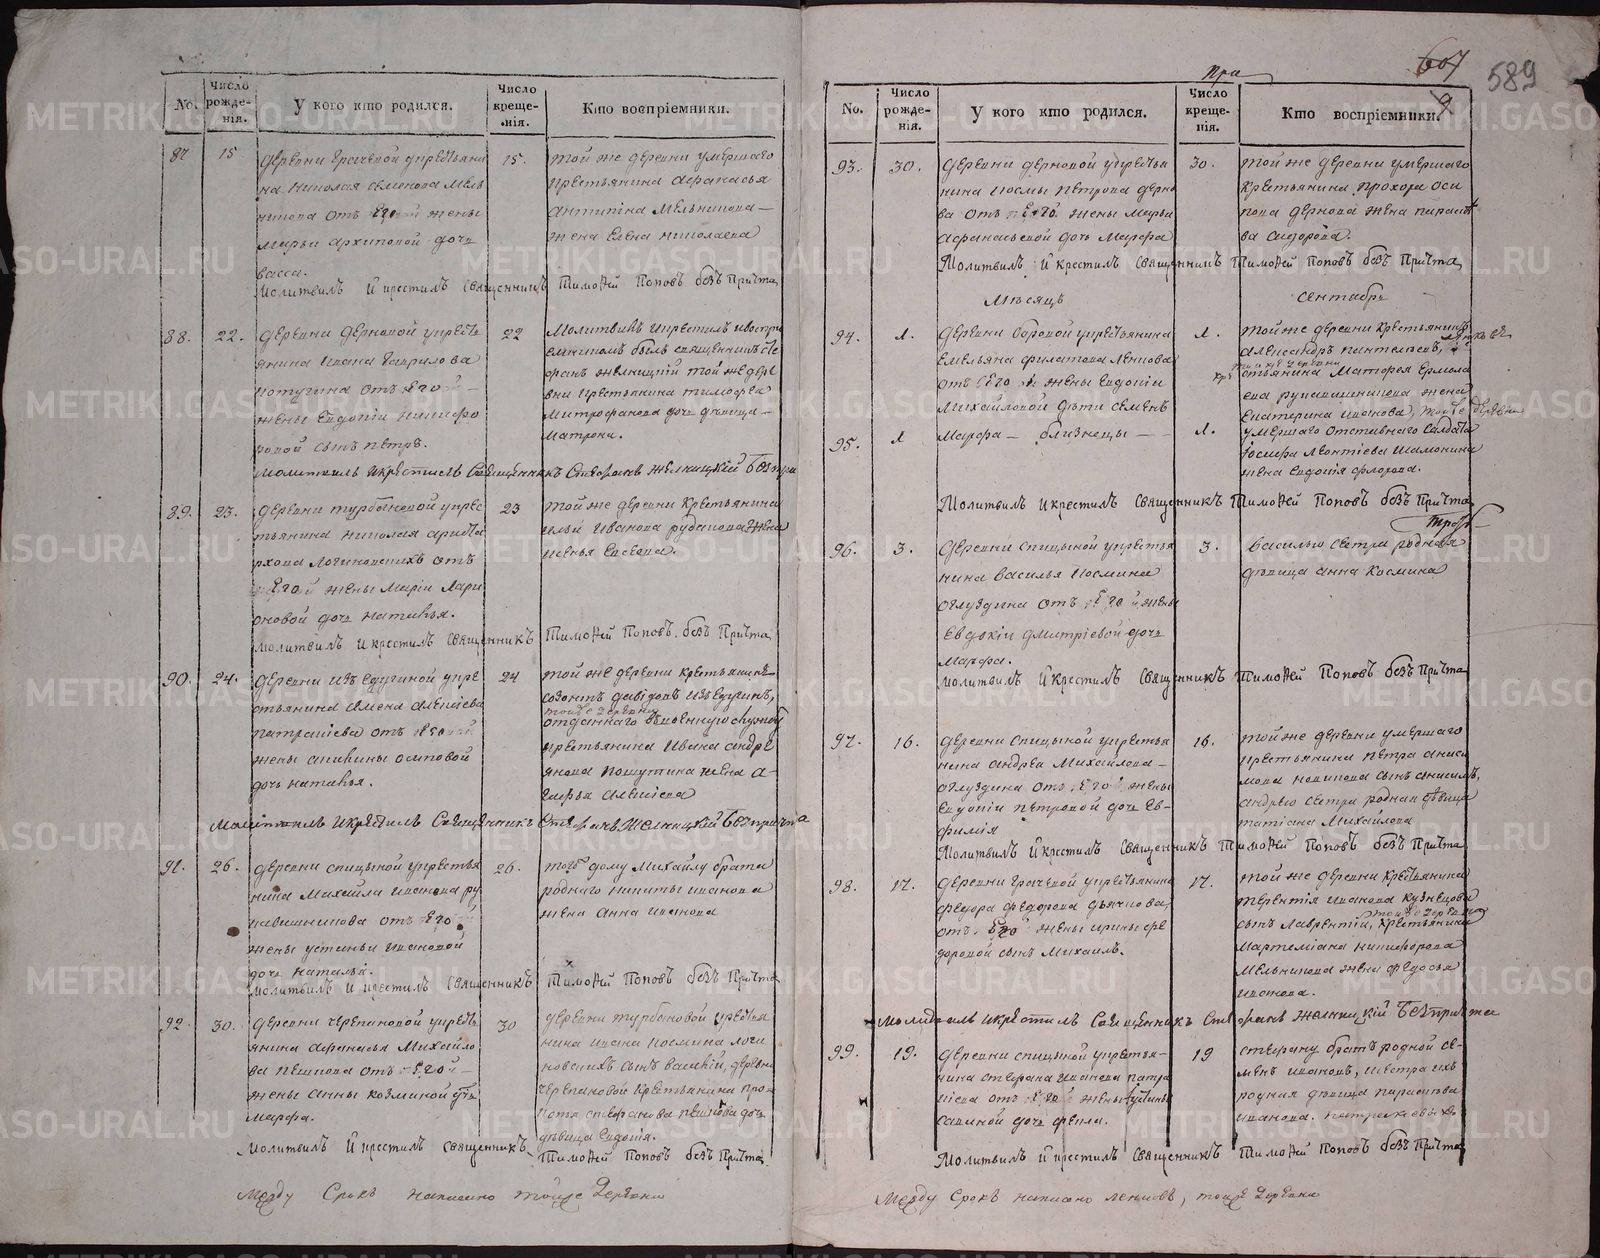 №.
Число рожде- нія.
У кого кто родился.
Число креще- нія.
Кто воспріемники.
87
15
деревни Грачевой укрестьяни
на Николая Семенова Мель
никова отъ Его жены
Марьи Архиповой дочь
васса.
15.
той же деревни умершаго
крестьянина Афанасья
Антипина Мельникова —
жена Елена Николаева
Молитвилъ и крестилъ священникъ Тимоѳей Поповъ безъ Причта
88.
22.
деревни дерновой укресть
янина Ивана Гаврилова
потугина отъ Его —
жены Евдокіи Никифо
ровой сынъ петръ.
22
Молитвилъ икрестилъ ивоспри
емникомъ былъ священникъ Сте
фанъ Желницкій той же дере
вни крестьянина тимофея
Митрофанова дочь дѣвица —
Матрона.
Молитвилъ икрестилъ Священникъ Стефанъ Желницкій Безпри
89.
23.
деревни турбановой укрес
тьянина Николая
Логиновскихъ отъ
Его жены Маріи Лари
оновой дочь наталья.
23
той же деревни Крестьянина
ильи Иванова жена
Молитвилъ и крестилъ священникъ Тимоѳей Поповъ. безъ Причта
90.
24.
деревни укре
стьянина семена алексіева
патракіева отъ Его
жены акилины осиповой
дочь наталья.
24
той же деревни крестьянинъ
созонтъ давідовъ
тойже деревни
отданнаго въ военную службу
крестьянина Ивана андре
янова жена а-
алексіева
Молитвилъ Икрестилъ Священникъ Стефанъ Желницкій Безпричта
91.
26.
деревни спицыной укрестья
нина Михаила Иванова ру
кавишникова отъ Его
жены устиньи Ивановой
дочь наталья.
26.
тогоже дому Михайлу брата
роднаго никиты иванова
жена Анна Иванова
молитвилъ и крестилъ священникъ Тимоѳей Поповъ безъ Причта
92
30.
деревни черепановой укресть
янина Афанасья Михайло
ва пешкова отъ Его —
жены анны козминой дочь
марфа.
30
деревни турбановой крестья
нина ивана космина логи
новскихъ сынъ василій, деревни
черепановой крестьянина про
стефанова пешкова дочь
дѣвица Евдокія.
молитвилъ и крестилъ священникъ Тимоѳей Поповъ безъ Причта
Между Срокъ написано тойже деревни
при
607
589
9
№.
Число рожде- нія.
У кого кто родился.
Число креще- нія.
Кто воспріемники.
93.
30.
деревни дерновой укрестья
нина космы петрова дерно
ва отъ Его жены марьи
афанасьевой дочь марфа
30.
той же деревни умершаго
крестьянина прохора оси
пова дернова жена параске
ва сидорова.
Молитвилъ и крестилъ священникъ Тимоѳей Поповъ безъ Причта
Мѣсяцъ
сентябрь
94.
1.
деревни боровой укрестьянина
Емельяна филатова ленкова
отъ Его жены Евдокіи
Михайловой дѣти семенъ
1.
той же деревни крестьянинъ
александръ пантелеевъ,
тойже деревни
крестьянина Матфея Ермола
ева рукавишникова жена
Екатерина иванова, тойже деревни
95.
1
Марфа — близнецы —
1.
умершаго отставнаго солдата
Іосифа леонтіева Шамонина
жена Евдокія флорова.
Молитвилъ и крестилъ священникъ Тимоѳей Поповъ безъ Причта
96.
3.
деревни спицыной укрестья
нина василья космина
оглуздина отъ Его жены
Евдокіи дмитріевой дочь
марфа.
3.
василью сестра родная
дѣвица анна космина
молитвилъ и крестилъ священникъ Тимоѳей Поповъ безъ Причта
97.
16.
деревни спицыной укрестья
нина андрея Михайлова —
оглуздина отъ Его жены
Евдокіи петровой дочь Ев-
фимія
16.
той же деревни умершаго
крестьянина петра аниси
мова сынъ анисимъ,
андрею сестра родная дѣвица
татіана Михайлова
Молитвилъ и крестилъ священникъ Тимоѳей Поповъ безъ Причта
98.
17.
деревни Грачевой укрестьянина
федора федорова дьячкова,
отъ Его жены ирины фе
доровой сынъ михаилъ.
17.
той же деревни крестьянина
терентія иванова кузнецова
сынъ лаврентій, тойже деревни крестьянина
мартеміана никифорова
мельникова жена федосья
иванова.
Молитвилъ икрестилъ Священникъ Стефанъ Желницкій Безпричта
99.
19.
деревни спицыной укрестья-
нина стефана иванова патра
кіева отъ Его жены устиньи
савиной дочь фекла.
19
стефану братъ родной се-
менъ ивановъ, исестра ихъ
родная дѣвица параскева
иванова. патракіевы
Молитвилъ и крестилъ священникъ Тимоѳей Поповъ безъ Причта
Между срокъ написано ленковъ, тойже деревни
METRIKI.GASO-URAL.RU